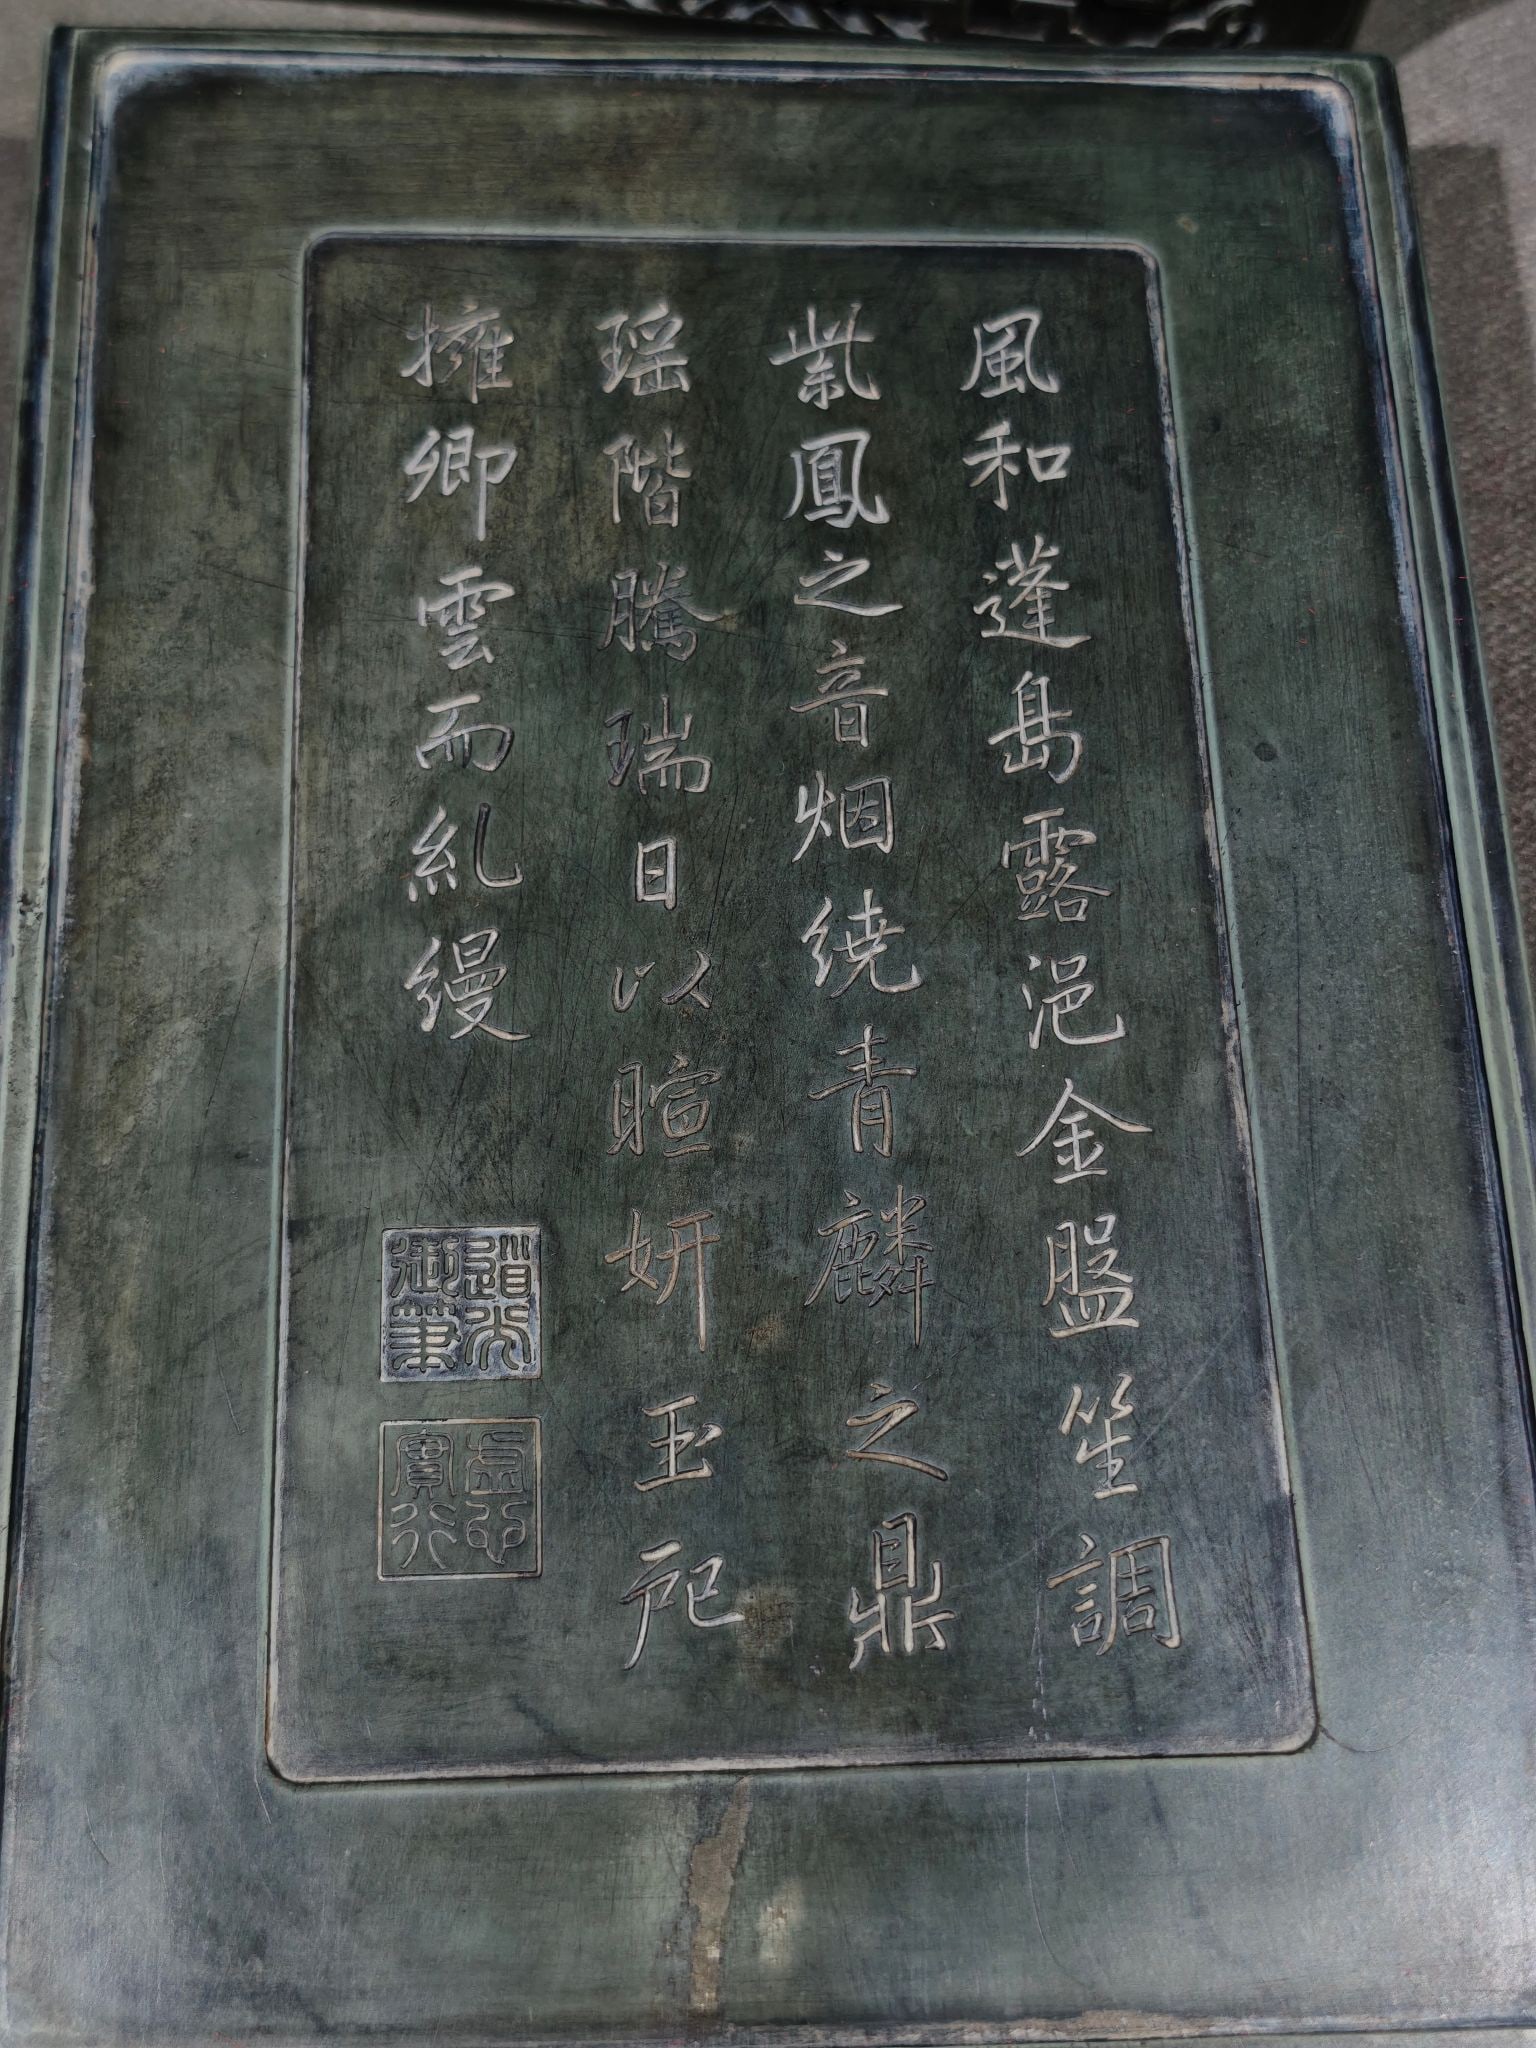 風和蓬島露浥金盤笙調
紫鳳之音烟繞青麟之鼎
瑶階騰瑞日以暄妍玉戺
擁卿雲而糺縵
道光御筆
虛心實行